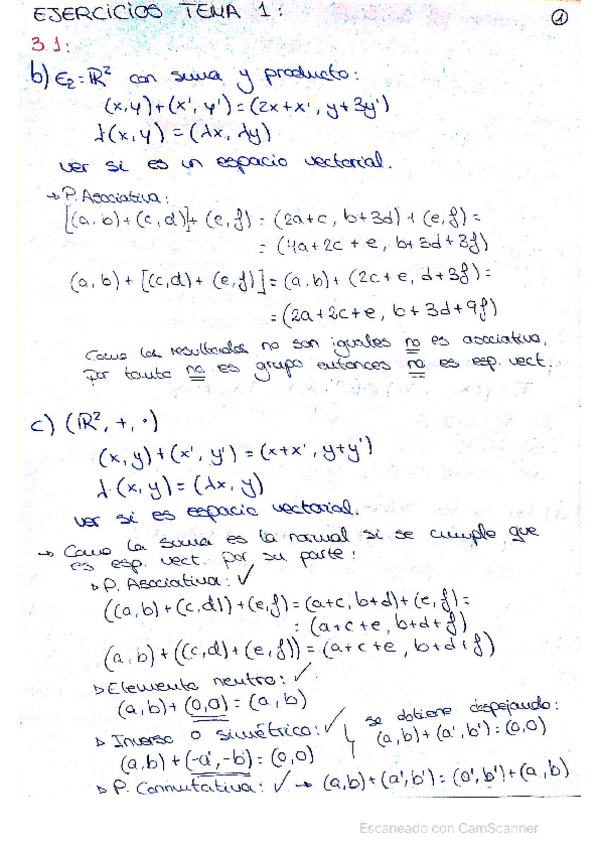 EJERCICIOS TEMA 1:
1
3.1:
b) E₂=ℝ² con suma y producto:
(x,y)+(x',y')=(2x+x', y+3y')
λ(x,y)=(λx, λy)
ver si es un espacio vectorial.
→ P. Asociativa:
[(a,b)+(c,d)]+(e,f)=(2a+c, b+3d)+(e,f)=
=(4a+2c+e, b+3d+3f)
(a,b)+[(c,d)+(e,f)]=(a,b)+(2c+e, d+3f)=
=(2a+2c+e, b+3d+9f)
Como los resultados no son iguales no es asociativo,
por tanto no es grupo entonces no es esp. vect.
c) (ℝ², +, ·)
(x,y)+(x',y')=(x+x', y+y')
λ·(x,y)=(λx, y)
ver si es espacio vectorial.
→ Como la suma es la normal si se cumple que
es esp. vect. por su parte:
▹ P. Asociativa: ✓
((a,b)+(c,d))+(e,f)=(a+c, b+d)+(e,f)=
=(a+c+e, b+d+f)
(a,b)+((c,d)+(e,f))=(a+c+e, b+d+f)
▹ Elemento neutro: ✓
(a,b)+(0,0)=(a,b)
▹ Inverso o simétrico: ✓
se obtiene despejando:
(a,b)+(a',b')=(0,0)
(a,b)+(-a',-b)=(0,0)
▹ P. Conmutativa: ✓ → (a,b)+(a',b')=(a',b')+(a,b)
Escaneado con CamScanner